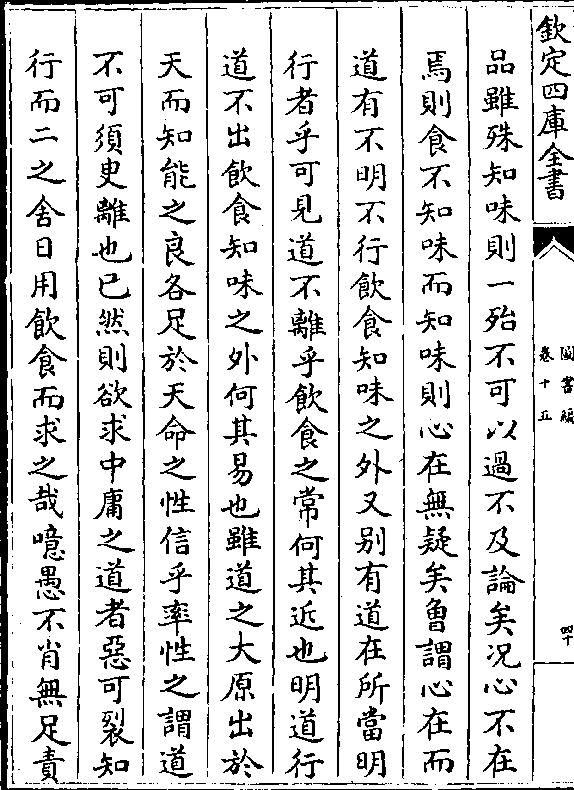 欽定四庫全書
圖書編
卷十五
四十
品雖殊知味則一殆不可以過不及論矣况心不在
焉則食不知味而知味則心在無疑矣魯謂心在而
道有不明不行飲食知味之外又别有道在所當明
行者乎可見道不離乎飲食之常何其近也明道行
道不出飲食知味之外何其易也雖道之大原出於
天而知能之良各足於天命之性信乎率性之謂道
不可須臾離也已然則欲求中庸之道者惡可裂知
行而二之舍日用飲食而求之哉噫愚不肖無足責